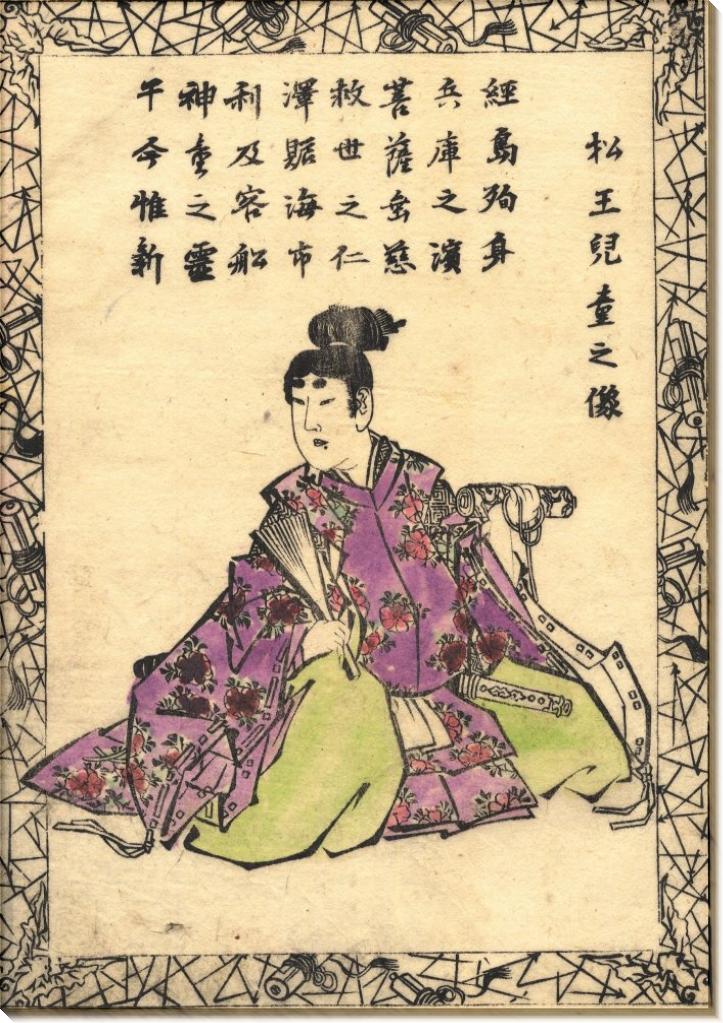 松王兒童之像
經島殉身
兵庫之濱
菩薩垂慈
救世之仁
澤賑海市
利及客舩
神童之靈
于今惟新